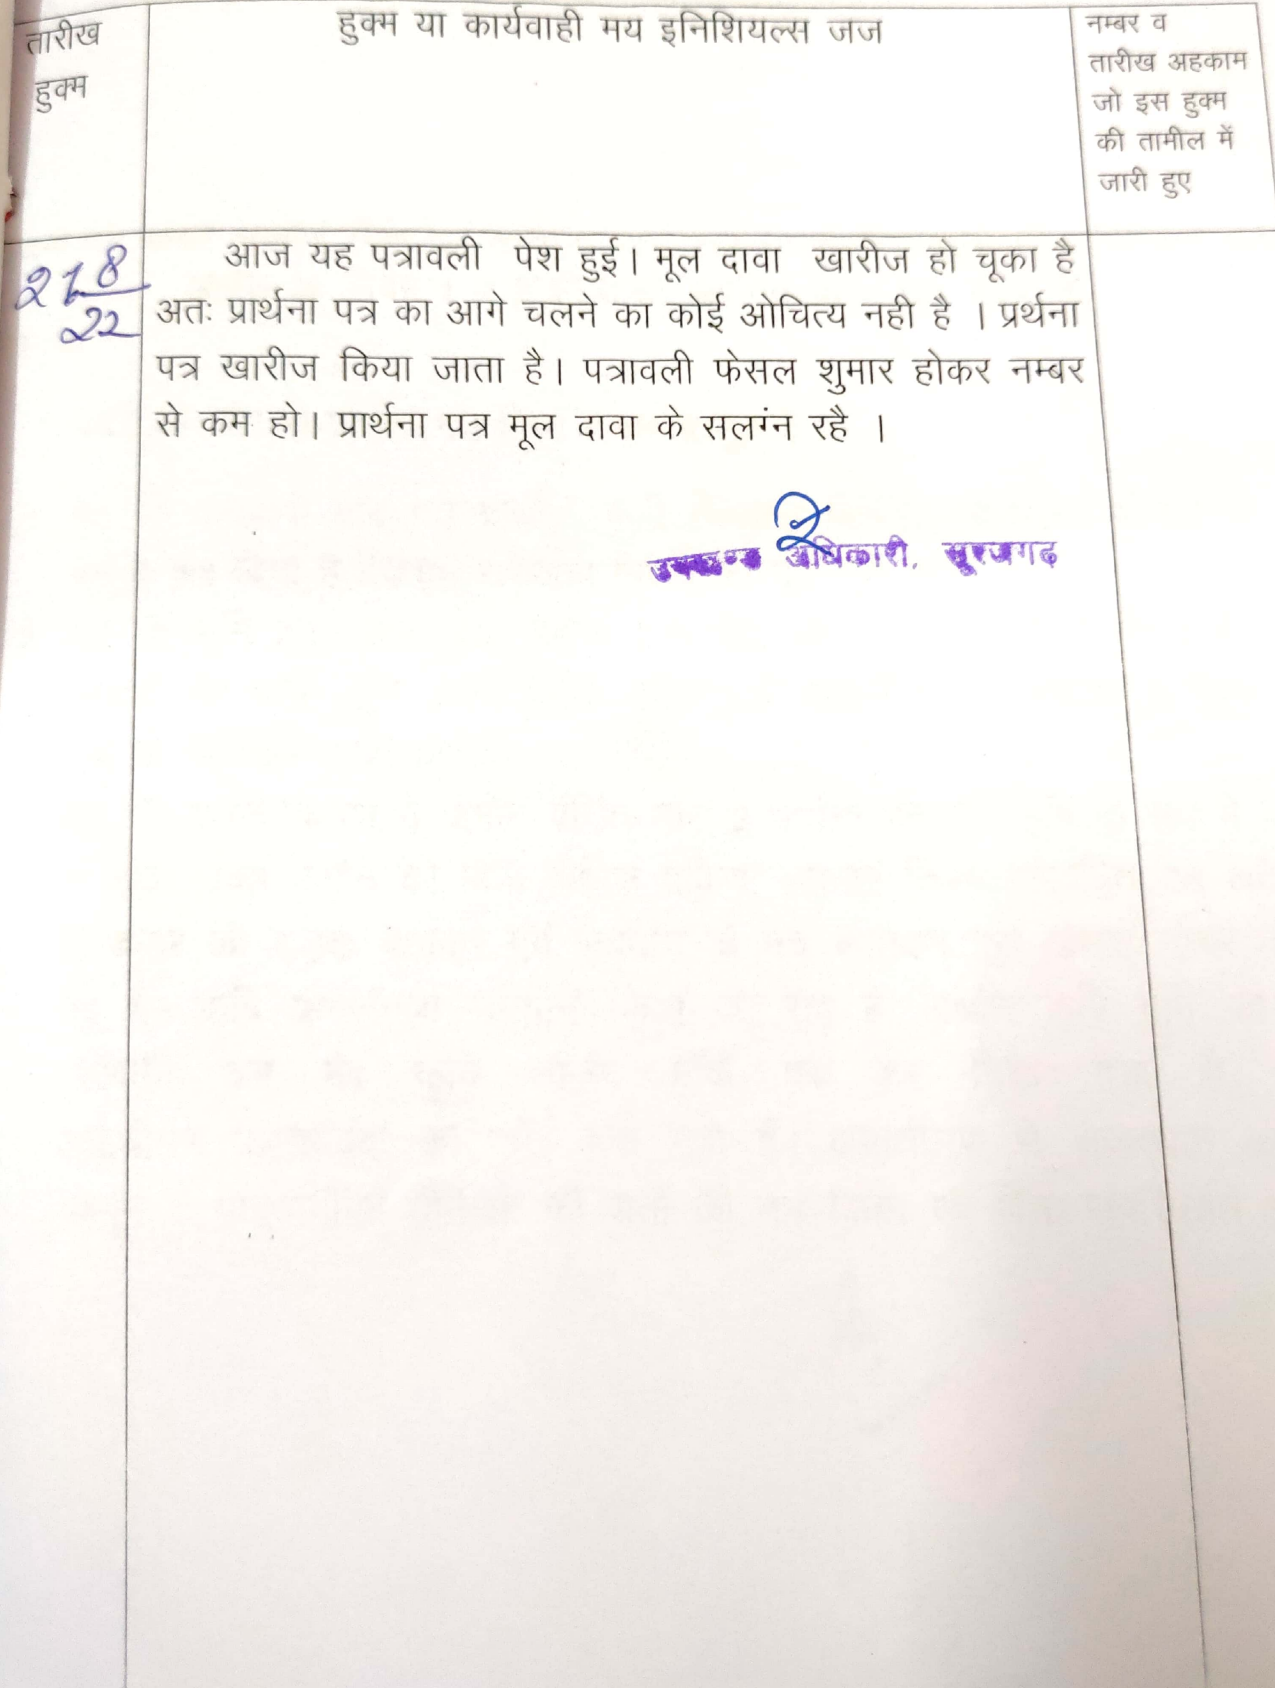 तारीख
हुक्म
हुक्म या कार्यवाही मय इनिशियल्स जज
नम्बर व
तारीख अहकाम
जो इस हुक्म
की तामील में
जारी हुए
8
22
आज यह पत्रावली पेश हुई। मूल दावा खारीज हो चूका है
अतः प्रार्थना पत्र का आगे चलने का कोई ओचित्य नही है । प्रर्थना
पत्र खारीज किया जाता है। पत्रावली फेसल शुमार होकर नम्बर
से कम हो। प्रार्थना पत्र मूल दावा के सलग्ंन रहै ।
उपखण्ड अधिकारी, सूरजगढ